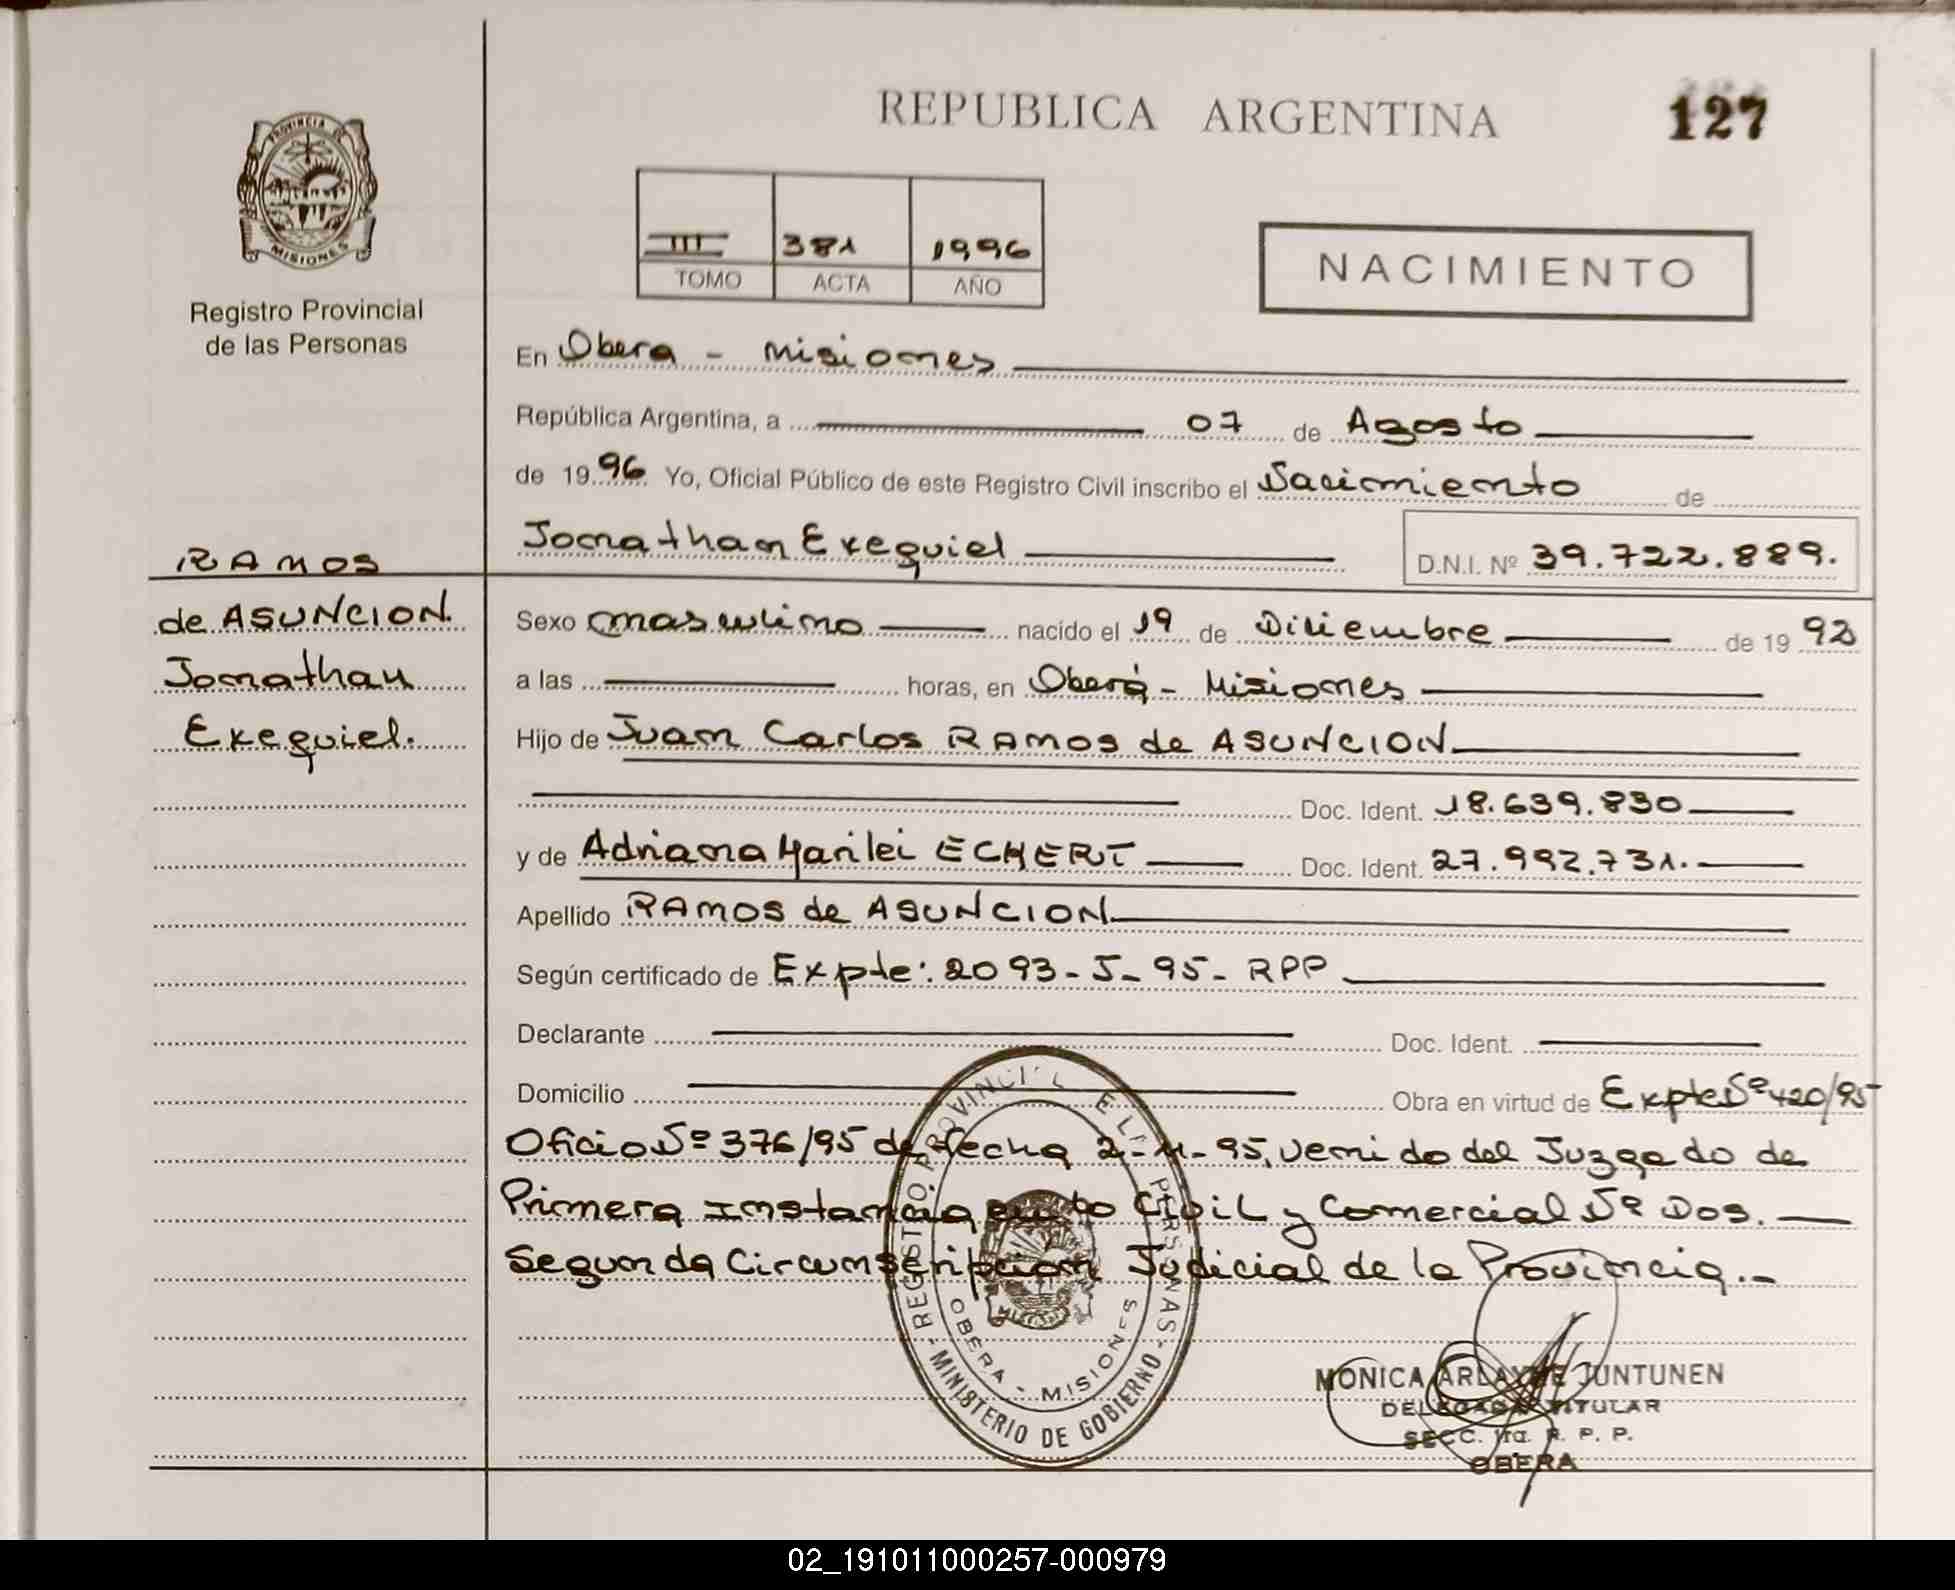 REPUBLICA ARGENTINA
127
PROVINCIA DE
MISIONES
Registro Provincial
de las Personas
III 381 1996
TOMO ACTA AÑO
NACIMIENTO
En Obera - Misiones
República Argentina, a 07 de Agosto
de 1996 Yo, Oficial Público de este Registro Civil inscribo el Nacimiento de
Jonathan Exequiel D.N.I. Nº 39.722.889.
RAMOS
de ASUNCION
Jonathan
Exequiel.
Sexo masculino nacido el 19 de Diciembre de 1992
a las horas, en Oberá - Misiones
Hijo de Juan Carlos RAMOS de ASUNCION
Doc. Ident. 18.639.830
y de Adriana Marilei ECHERT Doc. Ident. 27.992.731.
Apellido RAMOS de ASUNCION
Según certificado de Expte: 2093-J-95- RPP
Declarante Doc. Ident.
Domicilio Obra en virtud de Expte Nº 420/95
Oficio Nº 376/95 de fecha 2-11-95, venido del Juzgado de
Primera Instancia en lo Civil y Comercial Nº Dos.
Segunda Circunscripcion Judicial de la Provincia.-
REGISTRO PROVINCIAL DE LAS PERSONAS
MINISTERIO DE GOBIERNO
OBERA - MISIONES
MONICA ARLAYNE JUNTUNEN
DELEGADA TITULAR
SECC. 1ra. R. P. P.
OBERA
02_191011000257-000979